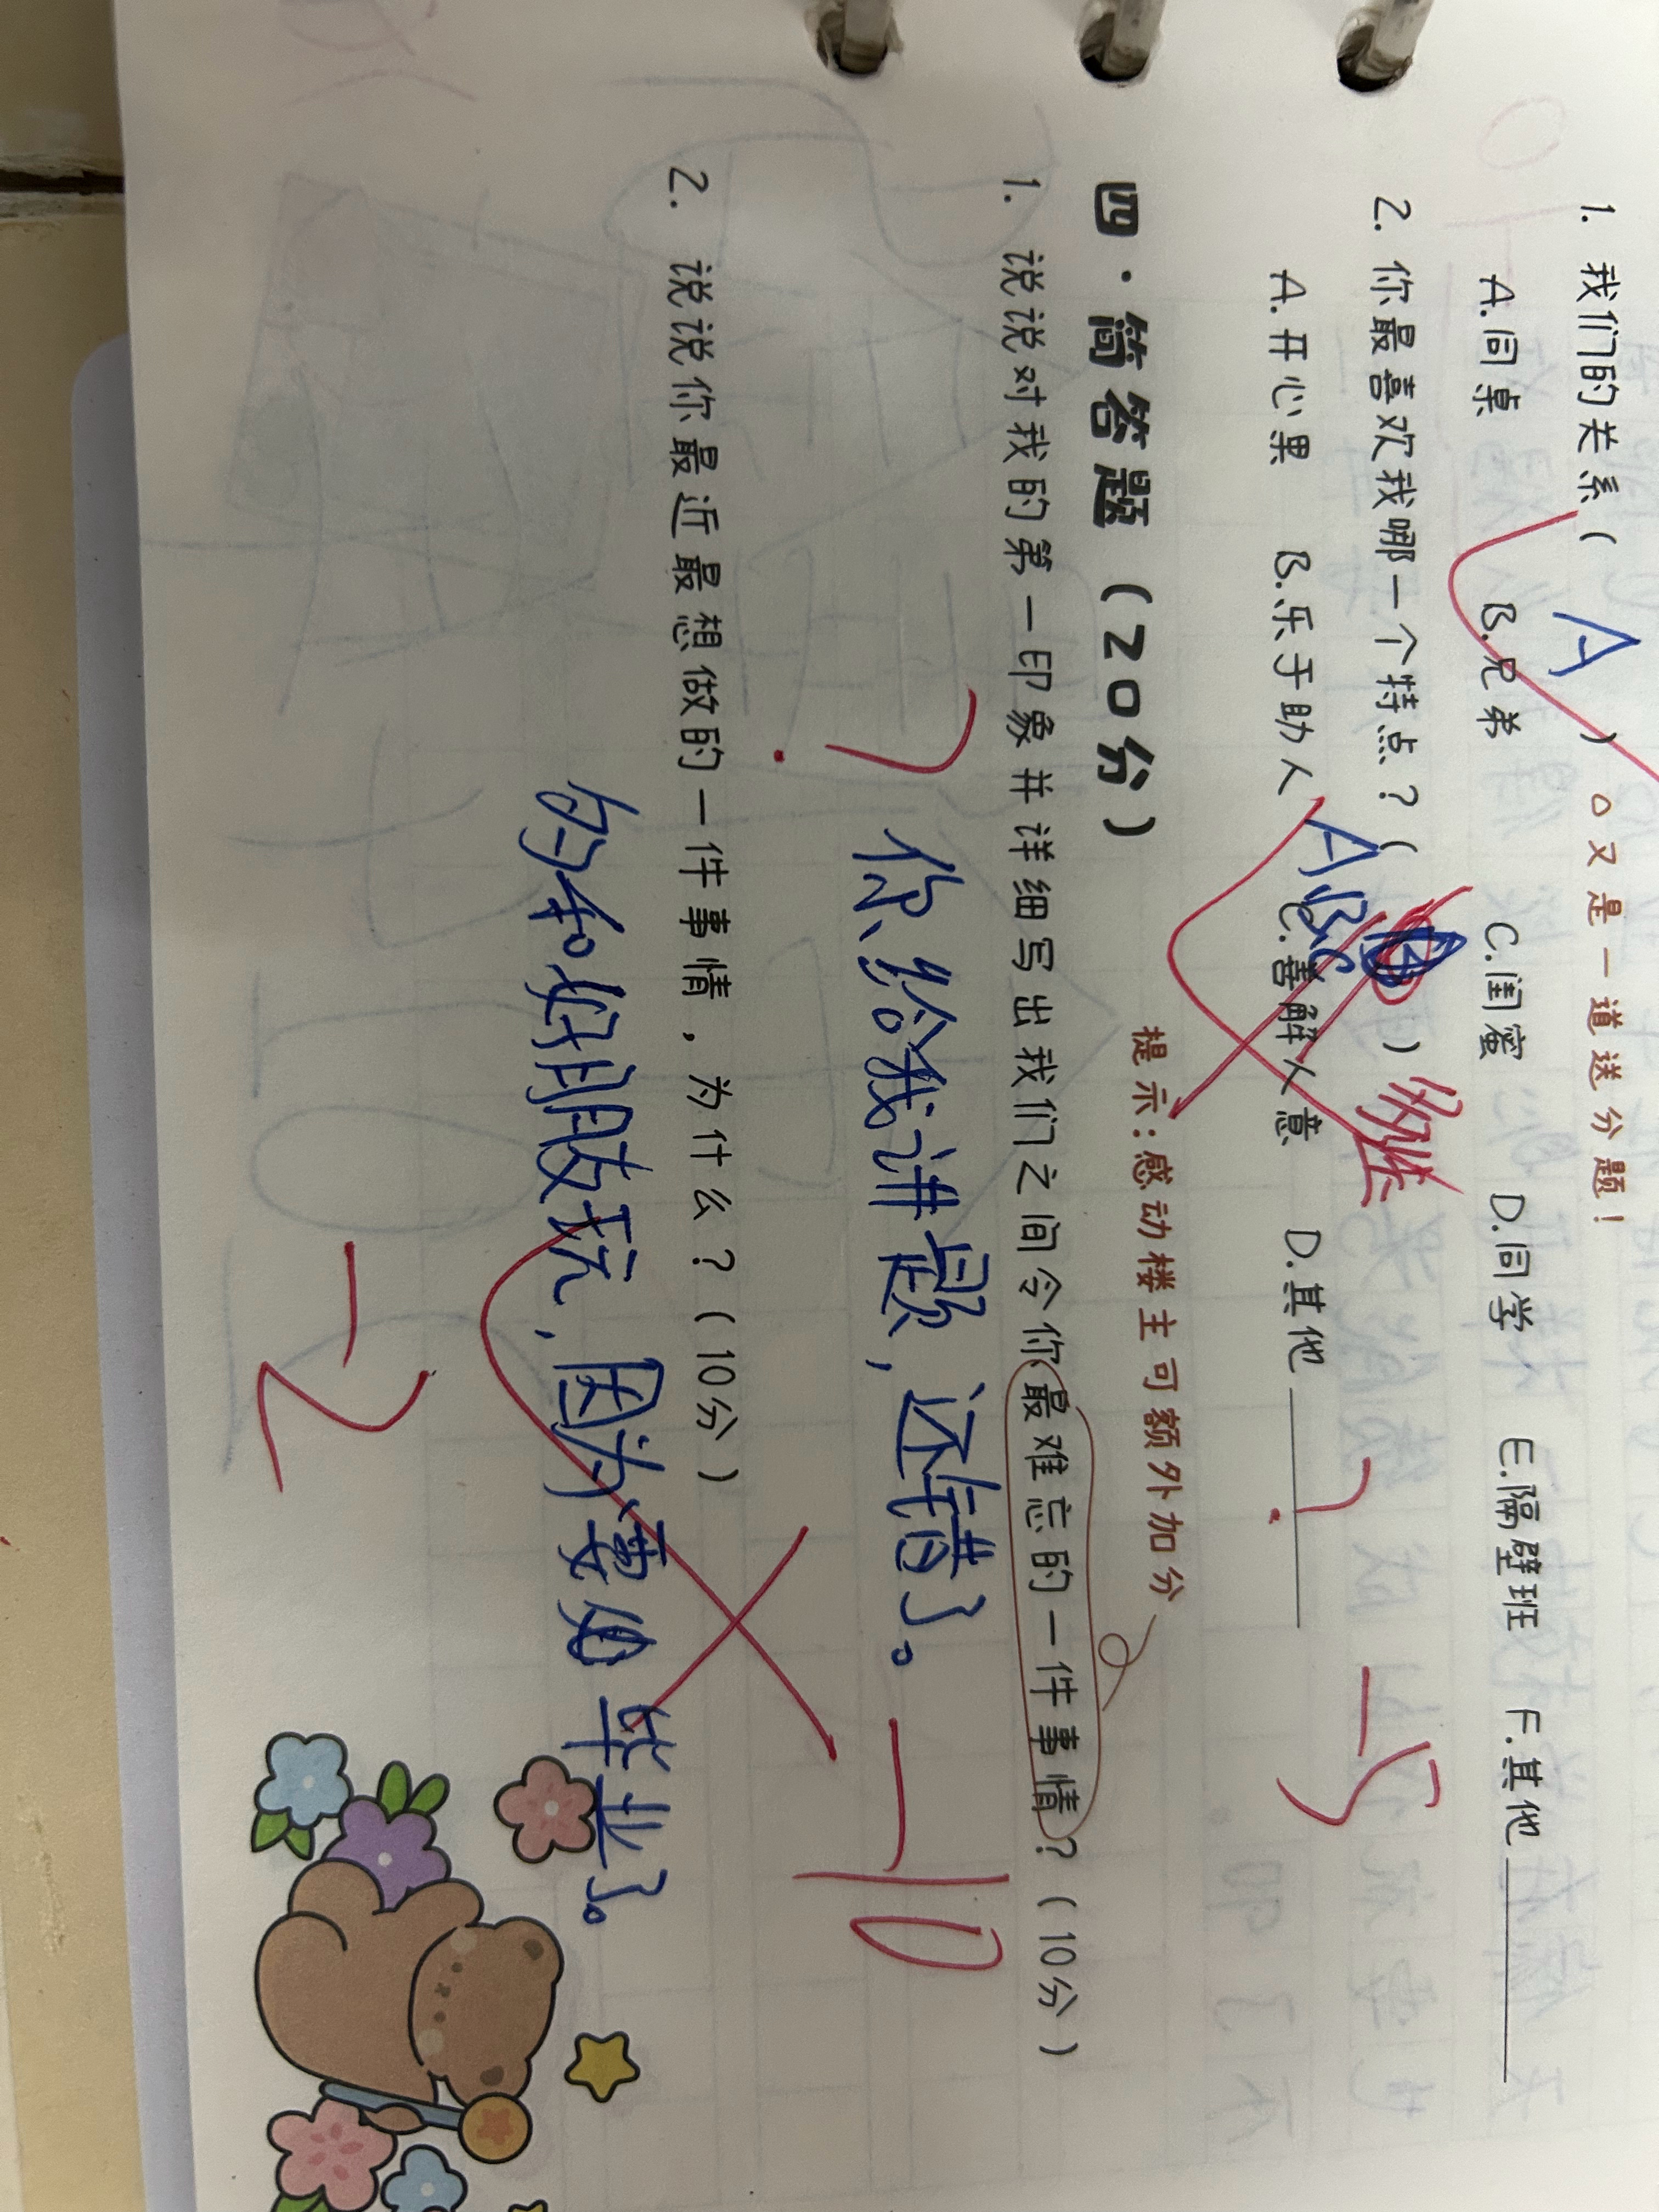 1. 我们的关系( A ) 又是一道送分题!
A.同桌 B.兄弟 C.闺蜜 D.同学 E.隔壁班 F.其他
2. 你最喜欢我哪一个特点?( ) 多选
ABC
A.开心果 B.乐于助人 C.善解人意 D.其他
? -5
提示:感动楼主可额外加分
四·简答题(20分)
1. 说说对我的第一印象并详细写出我们之间令你最难忘的一件事情?(10分)
? 你给我讲题,还错了。 -10
2. 说说你最近最想做的一件事情,为什么?(10分)
和好朋友玩,因为要 毕业了。
-2